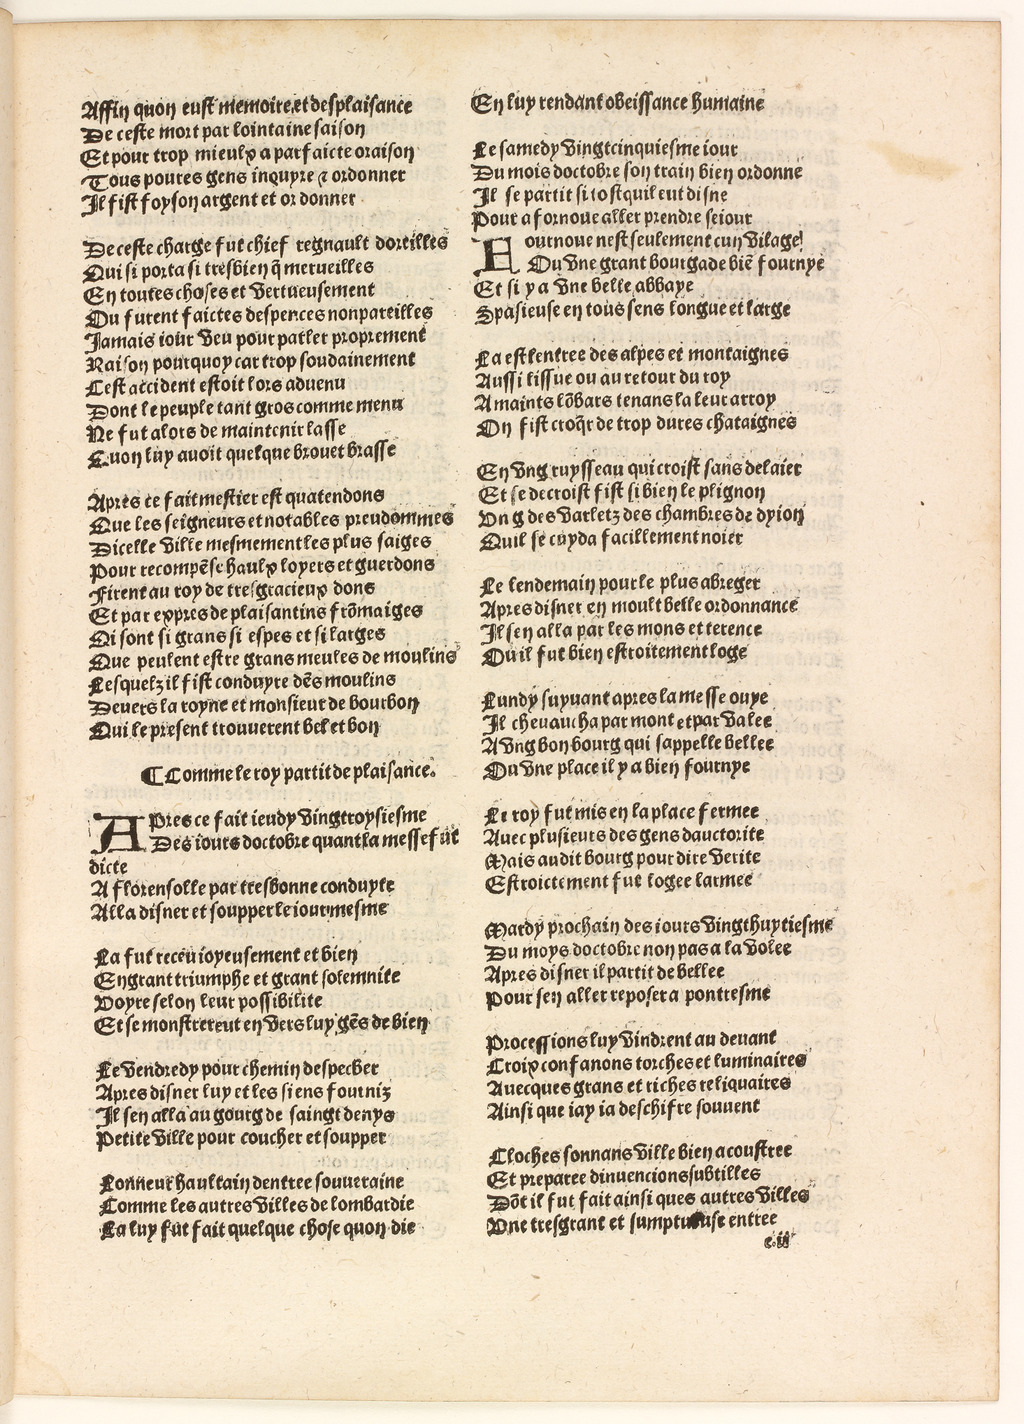 Affin quon eust memoire et desplaisance
De ceste mort par lointaine saison
Et pour trop mieulx a parfaicte oraison
Tous poures gens inquyre ⁊ ordonner
Il fist foyson argent et or donner
De ceste charge fut chief regnault dortilles
Qui si porta si tresbien q̄ merueilles
En toutes choses et vertueusement
Ou furent faictes despences nonpareilles
Jamais iour veu pour parler proprement
Raison pourquoy car trop soudainement
Cest accident estoit lors aduenu
Dont le peuple tant gros comme menu
Ne fut alors de maintenir lasse
Quon luy auoit quelque brouet brasse
Apres ce fait mestier est quatendons
Que les seigneurs et notables preudommes
Dicelle ville mesmement les plus saiges
Pour recompēse haulx loyers et guerdons
Firent au roy de tresgracieux dons
Et par expres de plaisantins frōmaiges
Qi sont si grans si espes et si larges
Que peulent estre grans meules de moulins
Lesquelz il fist conduyre dēs moulins
Deuers la royne et monsieur de bourbon
Qui le present trouuerent bel et bon
¶ Comme le roy partit de plaisance.
APres ce fait ieudy vingttroysiesme
Des iours doctobre quant la messe fut
dicte
A florensolle par tresbonne conduyte
Alla disner et soupper le iour mesme
La fut receu ioyeusement et bien
En grant triumphe et grant solemnite
Voyre selon leur possibilite
Et se monstrerent en vers luy gēs de bien
Le vendredy pour chemin despecher
Apres disner luy et les siens fourniz
Il sen alla au gourg de saingt denys
Petite ville pour coucher et soupper
Lonneur haultain dentree souueraine
Comme les autres villes de lombardie
La luy fut fait quelque chose quon die
En luy rendant obeissance humaine
Le samedy vingtcinquiesme iour
Du mois doctobre son train bien ordonne
Il se partit si tost quil eut disne
Pour a fornoue aller prendre seiour
Fournoue nest seulement cun vilage
Ou vne grant bourgade biē fournye
Et si y a vne belle abbaye
Spasieuse en tous sens longue et large
La est lentree des alpes et montaignes
Aussi lissue ou au retour du roy
A maints lōbars tenans la leur arroy
On fist croq̄r de trop dures chataignes
En vng ruysseau qui croist sans delaier
Et se decroist fist si bien le plignon
Vng des varletz des chambres de dyion
Quil se cuyda facillement noier
Le lendemain pour le plus abreger
Apres disner en moult belle ordonnance
Il sen alla par les mons et terence
Ou il fut bien estroitement loge
Lundy suyuant apres la messe ouye
Il cheuaucha par mont et par valee
A vng bon bourg qui sappelle bellee
Ou vne place il y a bien fournye
Le roy fut mis en la place fermee
Auec plusieurs des gens dauctorite
Mais audit bourg pour dire verite
Estroictement fut logee larmee
Mardy prochain des iours vingthuytiesme
Du moys doctobre non pas a la volee
Apres disner il partit de bellee
Pour sen aller reposer a pontresme
Processions luy vindrent au deuant
Croix confanons torches et luminaires
Auecques grans et riches reliquaires
Ainsi que iay ia deschifre souuent
Cloches sonnans ville bien acoustree
Et preparee dinuencions subtilles
Dōt il fut fait ainsi ques autres villes
Vne tresgrant et sumptueuse entree
e.ii